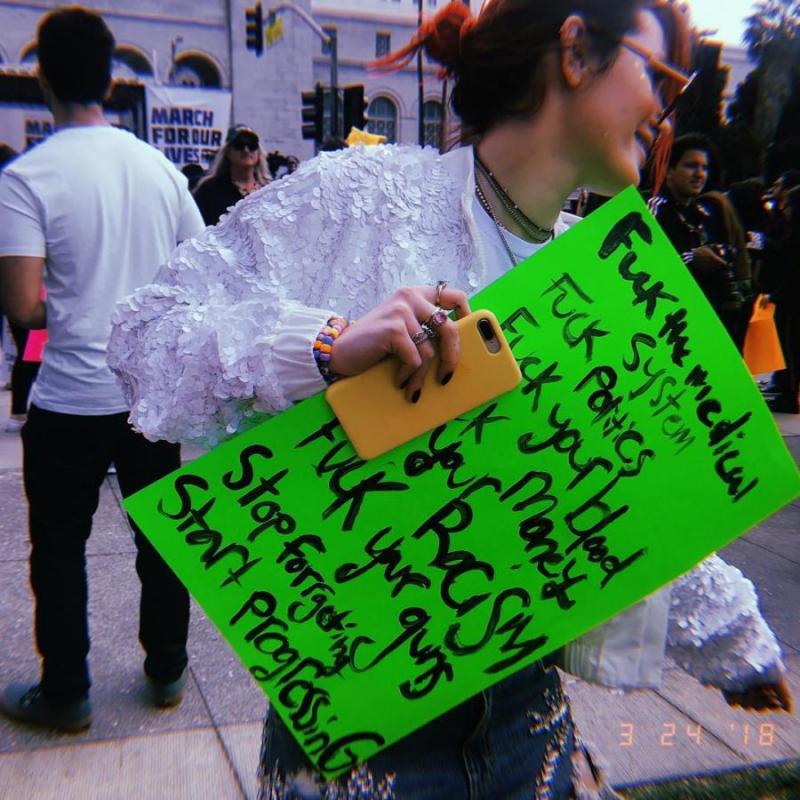 MARCH
FOR OUR
LIVES
Fuck the medical
system
Fuck Politics
Fuck your blood
Money
your Racism
Fuck your guns
Stop forgetting
Start progressinG
3 24 '18